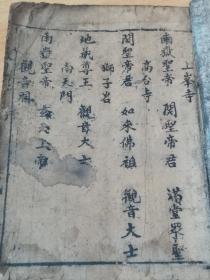 上峯寺
南嶽聖帝 関聖帝君 滿堂眾聖
高台寺
関聖帝君 如來佛祖 觀音大士
獅子岩
地藏尊王 觀音大士
南天門
南嶽聖帝 玄天上帝
觀音閣